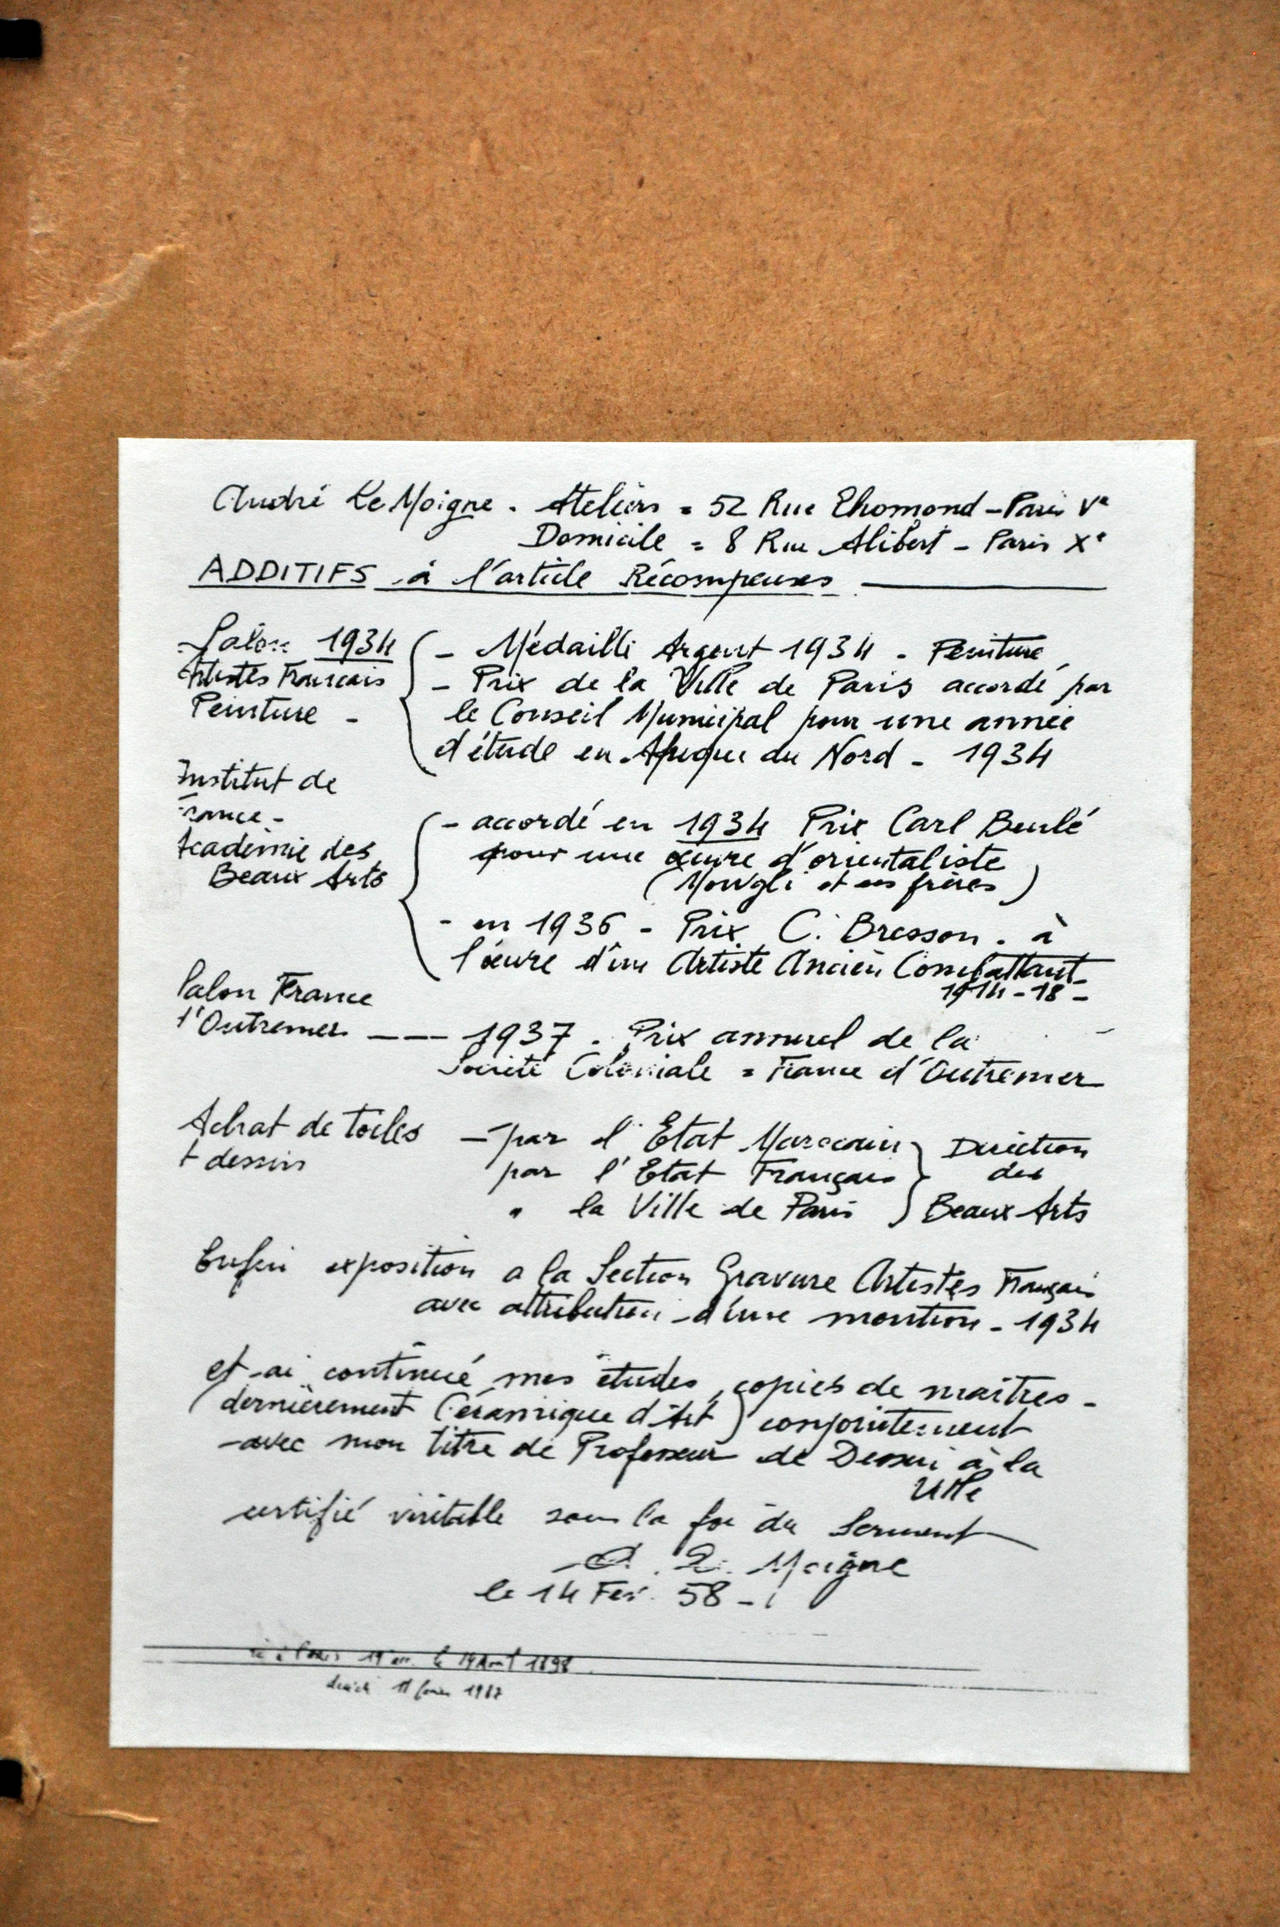 André Le Moigne. Ateliers = 52 Rue Lhomond - Paris Ve
Domicile = 8 Rue Alibert - Paris Xe
ADDITIFS à l'article Récompenses
Salon 1934
Artistes Francais
Peinture -
- Médaille Argent 1934 - Peinture
- Prix de la Ville de Paris accordé par
le Conseil Municipal pour une année
d'étude en Afrique du Nord - 1934
Institut de
France -
Académie des
Beaux Arts
- accordé en 1934 Prix Carl Beulé
pour une œuvre d'orientaliste
(Mowgli et ses frères)
- en 1936 - Prix C. Bresson. à
l'œuvre d'un Artiste Ancien Combattant
1914-18-
Salon France
d'Outremer --- 1937. Prix annuel de la
Société Coloniale = France d'Outremer
Achat de toiles
+ dessins
- par l'Etat Marocain
par l'Etat Français
" la Ville de Paris
Direction
des
Beaux Arts
Enfin exposition a la Section Gravure Artistes Français
avec attribution d'une mention - 1934
et ai continué mes études, copies de maîtres -
(dernièrement Céramique d'Art) conjointement
avec mon titre de Professeur de Dessin à la
Ville
certifié véritable sous la foi du Serment
A. L. Moigne
le 14 Fev. 58 -
né à Paris 19 arr. le 14 Aout 1898
1987